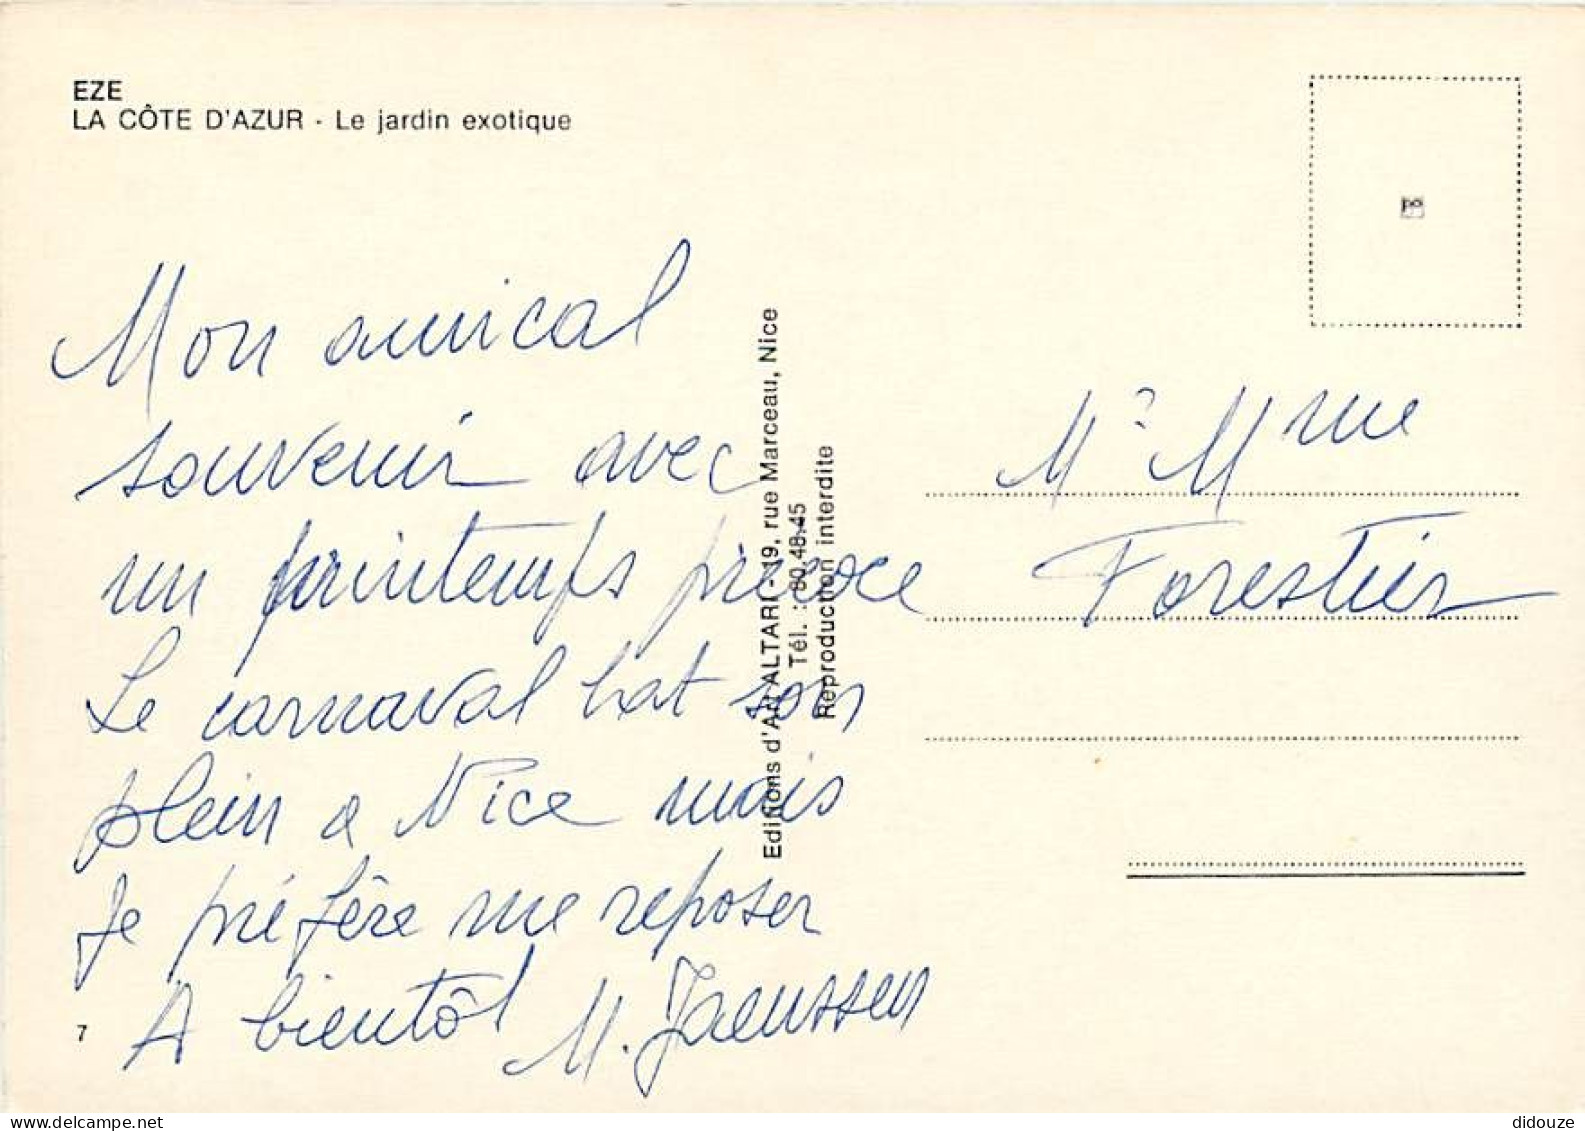 EZE
LA CÔTE D'AZUR - Le jardin exotique
Mon amical
souvenir avec
un printemps précoce
Le carnaval bat son
plein a Nice mais
Je préfère me reposer
A bientôt M. Jaenssen
7
Editions d'Art ALTARI - 19, rue Marceau, Nice
Tél. : 80.48.45
Reproduction interdite
Mr Mme
Forestier
didouze